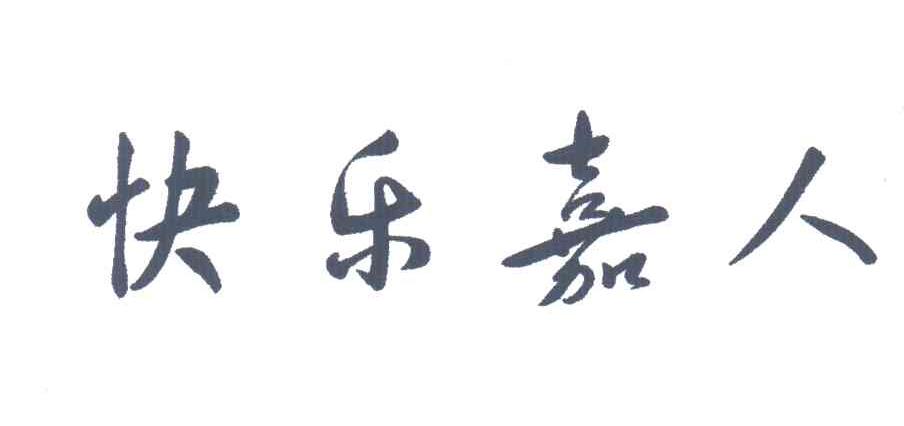 快乐嘉人